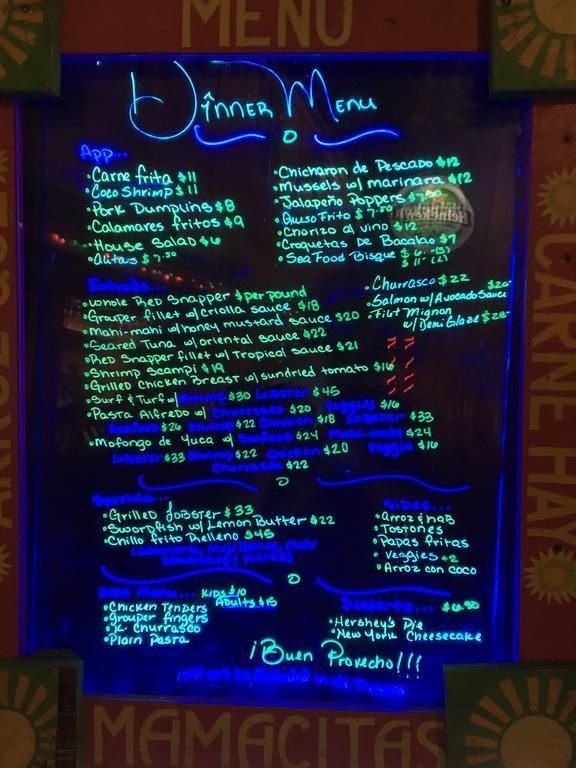 MENU
Dinner Menu
App...
• Carne frita $11
• Coco Shrimp $11
• Pork Dumplins $8
• Calamares fritos $9
• House Salad $6
• Alitas $7.50
• Chicharon de Pescado $12
• Mussels w/ marinara $12
• Jalapeño Poppers $7.50
• Queso Frito $7.50
• Chorizo al vino $12
• Croquetas De Bacalao $7
• Sea Food Bisque $6
Heineken
Entrees...
• whole Red Snapper $per pound
• Grouper fillet w/ criolla sauce $18
• Mahi-mahi w/ honey mustard sauce $20
• Seared Tuna w/ oriental sauce $22
• Red Snapper fillet w/ Tropical sauce $21
• Shrimp Scampi $19
• Grilled Chicken Breast w/ sundried tomato $16
• Surf & Turf w/ Shrimp $30 Lobster $45
• Pasta Alfredo w/ Churrasco $20 Veggies $16
Seafood $26 Shrimp $22 Chicken $18 Lobster $33
• Mofongo de Yuca w/ Seafood $24 Mahi-mahi $24
Lobster $33 Shrimp $22 Chicken $20 Veggie $16
Churrasco $22
• Churrasco $22
• Salmon w/ Avocado Sauce
• Filet Mignon
w/ Demi Glaze
Specials...
• Grilled Lobster $33
• Swordfish w/ Lemon Butter $22
• Chillo frito Relleno $45
Sides...
• Arroz & hab
• Tostones
• Papas fritas
• Veggies +2
• Arroz con coco
Kids Menu... Kids $10
Adults $15
• Chicken Tenders
• Grouper fingers
• K. Churrasco
• Plain Pasta
Desserts... $6.50
• Hershey's Pie
• New York Cheesecake
¡Buen Provecho!!!
MAMACITAS
CARNE HAY